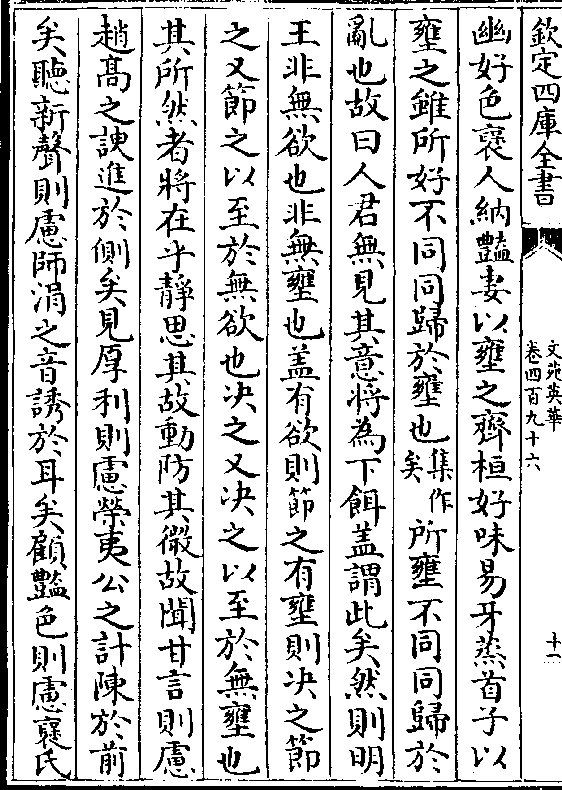 欽定四庫全書
文苑英華
卷四百九十六
十一
幽好色襃人納豔妻以壅之齊桓好味易牙蒸首子以
壅之雖所好不同同歸於壅也集作矣所壅不同同歸於
亂也故曰人君無見其意將為下餌蓋謂此矣然則明
王非無欲也非無壅也盖有欲則節之有壅則决之節
之又節之以至於無欲也决之又决之以至於無壅也
其所然者將在乎靜思其故動防其微故聞甘言則慮
趙髙之諛進於側矣見厚利則慮榮夷公之計陳於前
矣聽新聲則慮師涓之音誘於耳矣顧豔色則慮襃氏